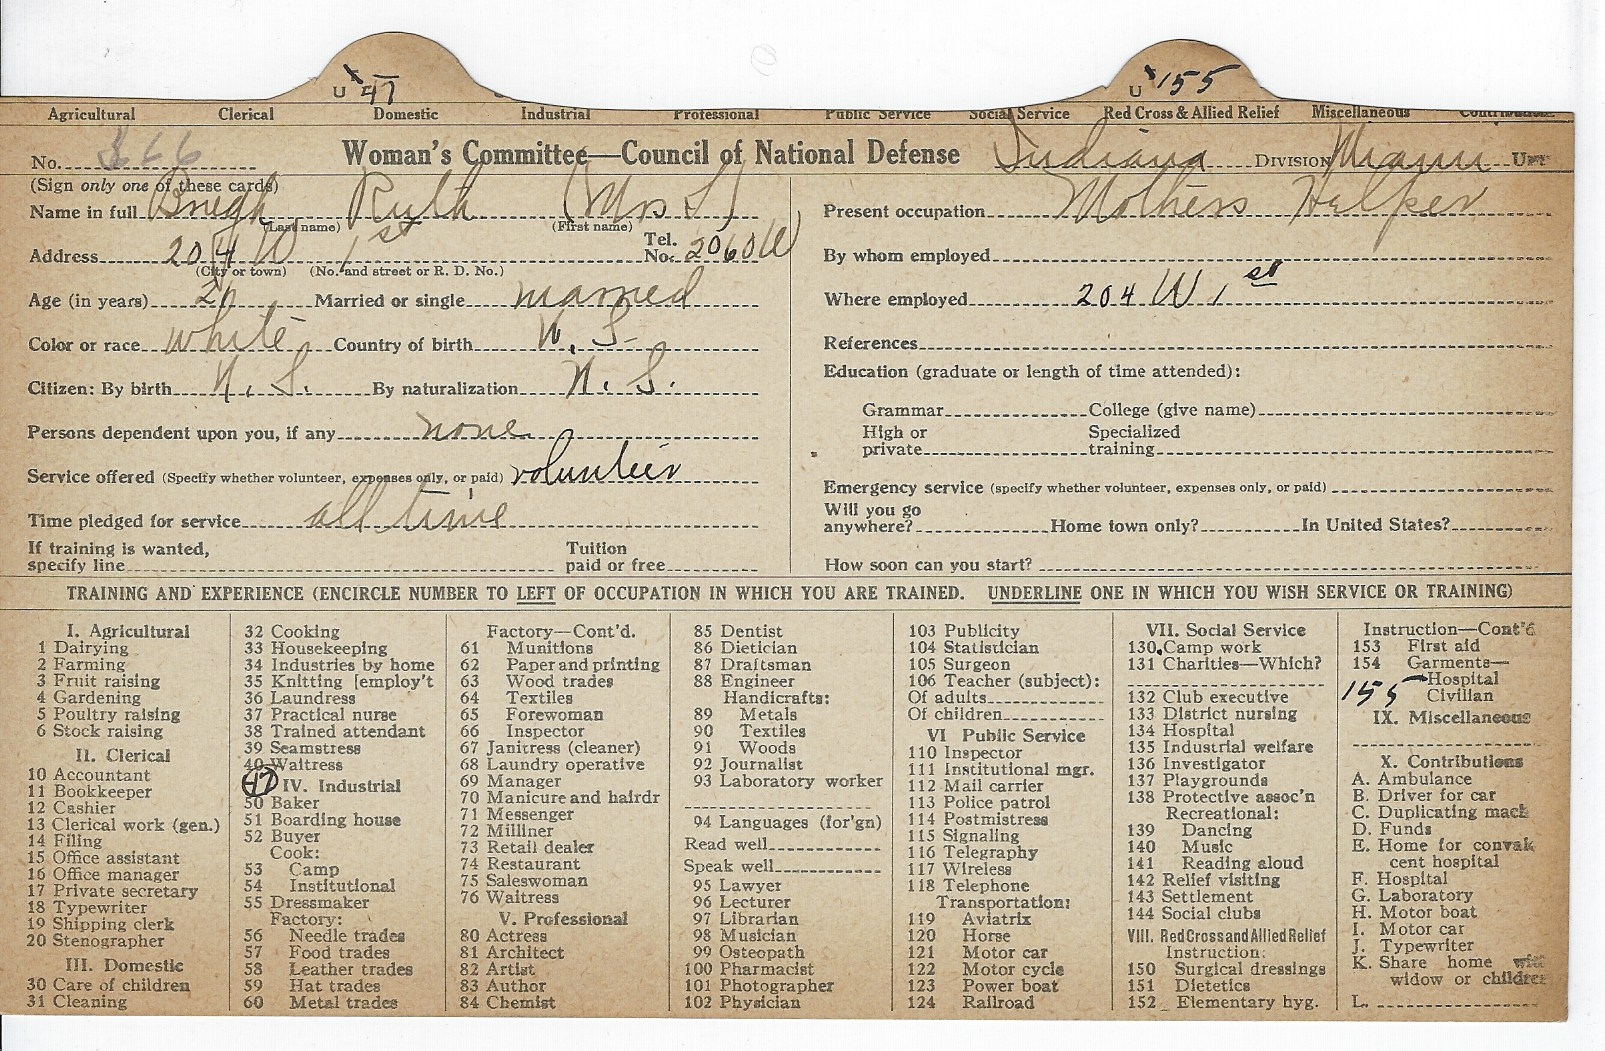 U 47
U 155
Agricultural Clerical Domestic Industrial Professional Public Service Social Service Red Cross & Allied Relief Miscellaneous Contributions
No. 366 Woman's Committee—Council of National Defense Indiana DIVISION Miami U
(Sign only one of these cards)
Name in full Ruth (Mrs S)
(Last name) (First name)
Address 204 W 1st Tel. No. 2060W
(City or town) (No. and street or R. D. No.)
Age (in years) Married or single married
Color or race white Country of birth U. S.
Citizen: By birth U. S. By naturalization U. S.
Persons dependent upon you, if any none
Service offered (Specify whether volunteer, expenses only, or paid) volunteer
Time pledged for service all time
If training is wanted, specify line Tuition paid or free
Present occupation Mothers Helper
By whom employed
Where employed 204 W 1st
References
Education (graduate or length of time attended):
Grammar College (give name)
High or private Specialized training
Emergency service (specify whether volunteer, expenses only, or paid)
Will you go anywhere? Home town only? In United States?
How soon can you start?
TRAINING AND EXPERIENCE (ENCIRCLE NUMBER TO LEFT OF OCCUPATION IN WHICH YOU ARE TRAINED. UNDERLINE ONE IN WHICH YOU WISH SERVICE OR TRAINING)
I. Agricultural
1 Dairying
2 Farming
3 Fruit raising
4 Gardening
5 Poultry raising
6 Stock raising
II. Clerical
10 Accountant
11 Bookkeeper
12 Cashier
13 Clerical work (gen.)
14 Filing
15 Office assistant
16 Office manager
17 Private secretary
18 Typewriter
19 Shipping clerk
20 Stenographer
III. Domestic
30 Care of children
31 Cleaning
32 Cooking
33 Housekeeping
34 Industries by home
35 Knitting [employ't
36 Laundress
37 Practical nurse
38 Trained attendant
39 Seamstress
40 Waitress
47
IV. Industrial
50 Baker
51 Boarding house
52 Buyer
Cook:
53 Camp
54 Institutional
55 Dressmaker
Factory:
56 Needle trades
57 Food trades
58 Leather trades
59 Hat trades
60 Metal trades
Factory—Cont'd.
61 Munitions
62 Paper and printing
63 Wood trades
64 Textiles
65 Forewoman
66 Inspector
67 Janitress (cleaner)
68 Laundry operative
69 Manager
70 Manicure and hairdr
71 Messenger
72 Milliner
73 Retail dealer
74 Restaurant
75 Saleswoman
76 Waitress
V. Professional
80 Actress
81 Architect
82 Artist
83 Author
84 Chemist
85 Dentist
86 Dietician
87 Draftsman
88 Engineer
Handicrafts:
89 Metals
90 Textiles
91 Woods
92 Journalist
93 Laboratory worker
94 Languages (for'gn)
Read well
Speak well
95 Lawyer
96 Lecturer
97 Librarian
98 Musician
99 Osteopath
100 Pharmacist
101 Photographer
102 Physician
103 Publicity
104 Statistician
105 Surgeon
106 Teacher (subject):
Of adults
Of children
VI Public Service
110 Inspector
111 Institutional mgr.
112 Mail carrier
113 Police patrol
114 Postmistress
115 Signaling
116 Telegraphy
117 Wireless
118 Telephone
Transportation:
119 Aviatrix
120 Horse
121 Motor car
122 Motor cycle
123 Power boat
124 Railroad
VII. Social Service
130. Camp work
131 Charities—Which?
132 Club executive
133 District nursing
134 Hospital
135 Industrial welfare
136 Investigator
137 Playgrounds
138 Protective assoc'n
Recreational:
139 Dancing
140 Music
141 Reading aloud
142 Relief visiting
143 Settlement
144 Social clubs
VIII. Red Cross and Allied Relief
Instruction:
150 Surgical dressings
151 Dietetics
152 Elementary hyg.
Instruction—Cont'd
153 First aid
154 Garments—
Hospital
155 Civilian
IX. Miscellaneous
X. Contributions
A. Ambulance
B. Driver for car
C. Duplicating mach
D. Funds
E. Home for conval
cent hospital
F. Hospital
G. Laboratory
H. Motor boat
I. Motor car
J. Typewriter
K. Share home with
widow or children
L.